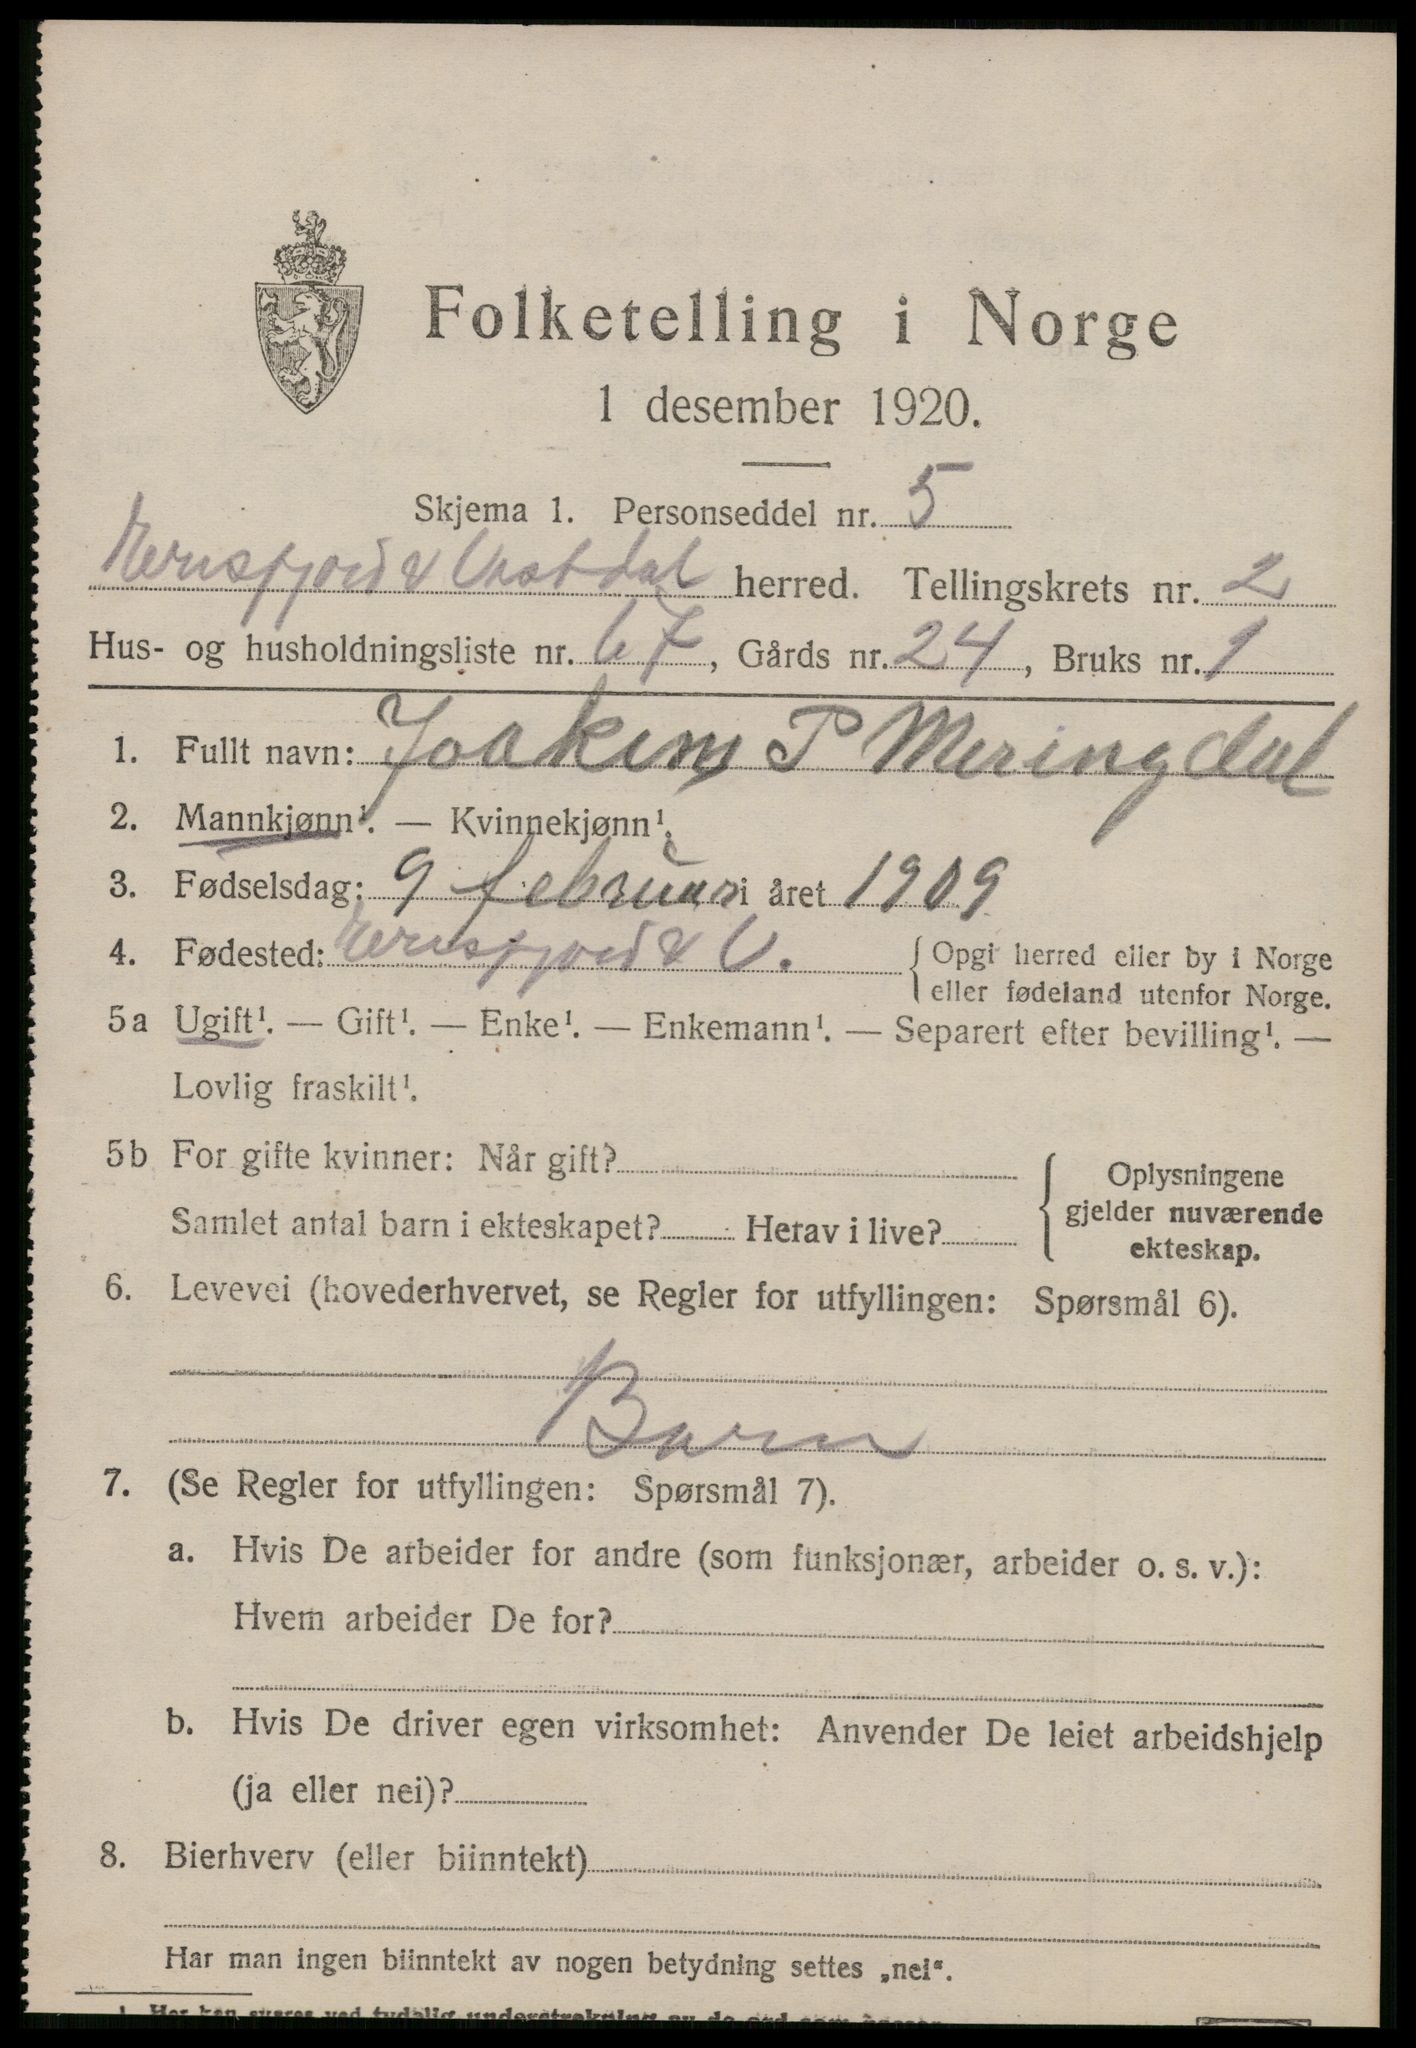 Folketelling i Norge
1 desember 1920.
Skjema 1. Personseddel nr. 5
& Vestdal herred. Tellingskrets nr. 2
Hus- og husholdningsliste nr. 67, Gårds nr. 24, Bruks nr. 1
1. Fullt navn: Joakim P Meringdal
2. Mannkjønn¹. — Kvinnekjønn¹.
3. Fødselsdag: 9 februar i året 1909
4. Fødested: & V. { Opgi herred eller by i Norge
eller fødeland utenfor Norge.
5a Ugift¹. — Gift¹. — Enke¹. — Enkemann¹. — Separert efter bevilling¹. —
Lovlig fraskilt¹.
5b For gifte kvinner: Når gift?
Samlet antal barn i ekteskapet? Herav i live?
{ Oplysningene
gjelder nuværende
ekteskap.
6. Levevei (hovederhvervet, se Regler for utfyllingen: Spørsmål 6).
Barn
7. (Se Regler for utfyllingen: Spørsmål 7).
a. Hvis De arbeider for andre (som funksjonær, arbeider o. s. v.):
Hvem arbeider De for?
b. Hvis De driver egen virksomhet: Anvender De leiet arbeidshjelp
(ja eller nei)?
8. Bierhverv (eller biinntekt)
Har man ingen biinntekt av nogen betydning settes „nei“.
¹ Her kan svares ved tydelig understrekning av de ord som passer.